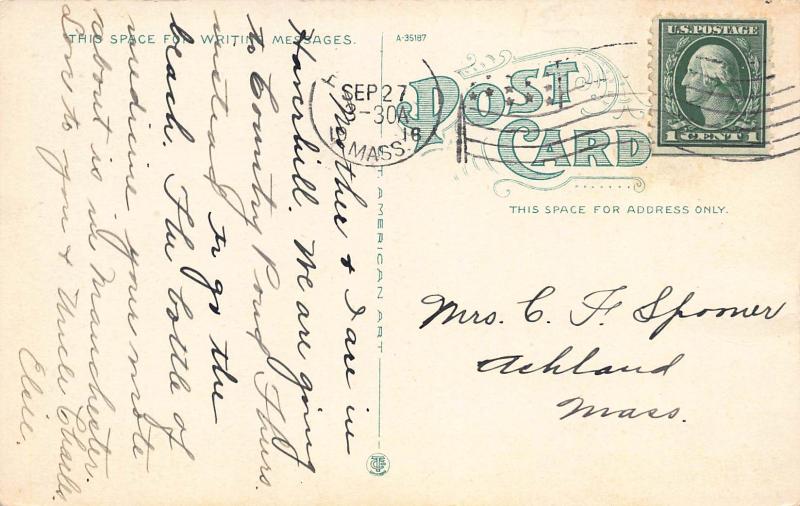 THIS SPACE FOR WRITING MESSAGES.
A-35187
POST CARD
THIS SPACE FOR ADDRESS ONLY.
U.S. POSTAGE
1 CENT 1
SEP 27
-30A
16
MASS.
AMERICAN ART
Mother & I are in
Haverhill. We are going
to Country Pond Thurs.
instead to go the
beach. The bottle of
medicine your wrote
about is in Manchester.
Love to you & Uncle Charlie
Elsie.
Mrs. C. F. Spooner
Ashland
Mass.